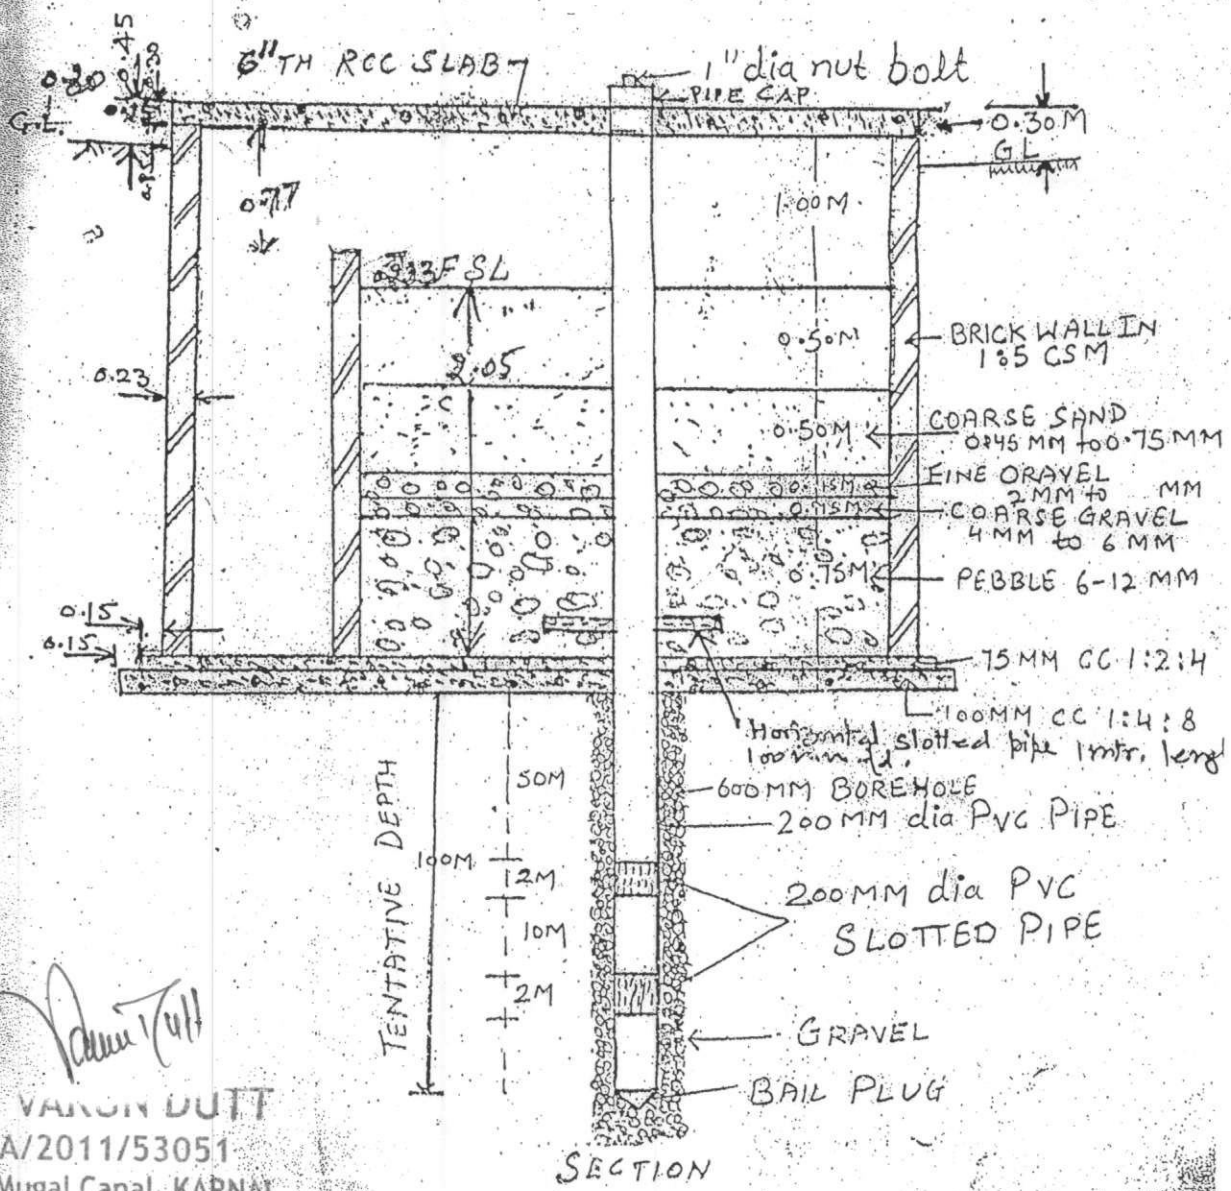 6"TH RCC SLAB
1" dia nut bolt
PIPE CAP
0.45
0.30
G.L.
0.30M
GL
0.77
1.00M
FSL
0.50M
BRICK WALL IN
1:5 CSM
2.05
0.23
0.50M
COARSE SAND
0.75 MM
FINE ORAVEL
2 MM to MM
0.15M
0.75M
COARSE GRAVEL
4 MM to 6 MM
0.75M
PEBBLE 6-12 MM
0.15
0.15
75 MM CC 1:2:4
100MM CC 1:4:8
Horizontal slotted pipe 1mtr. leng
TENTATIVE DEPTH
100M
50M
2M
10M
2M
600MM BOREHOLE
200MM dia PVC PIPE
200MM dia PVC
SLOTTED PIPE
GRAVEL
BAIL PLUG
SECTION
VARUN DUTT
A/2011/53051
Mugal Canal, KARNAL